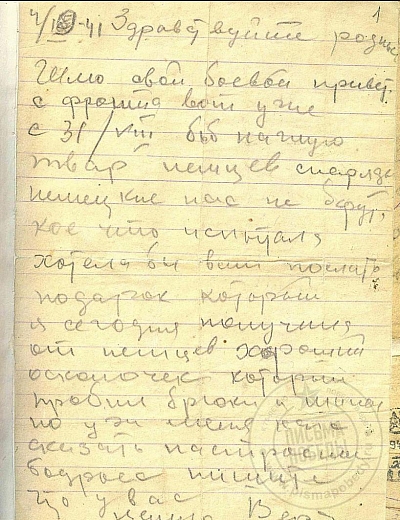 1
4/IX-41 Здравствуйте родные
Шлю свой боевой привет
с фронта вот уже
с 31/VIII бью наглую
тварь немцев снаряды
немецкие нас не берут,
кое что испытал,
хотел бы вам послать
подарок который
я сегодня получил
от немцев хороший
осколочек который
пробил брюки и
но у меня
сказать настроение
бодрое пишите
что у вас